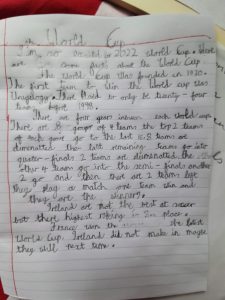 The World Cup
I'm so excited for 2022 World Cup. Here
are some facts about the World Cup.
The World Cup was founded in 1930.
The first team to win the World Cup was
Uruguay. There used to only be twenty-four
teams before 1998.
There are four years in every World Cup.
There are 8 groups of 4 teams the top 2 teams
of each group go to the last 16. 8 teams are
eliminated then last remaining teams go into
quarter-finals 2 teams are eliminated the
other 4 teams go into the semi-finals another
2 go and then there are 2 teams left
They play a match one team win and
they are the winners.
Ireland are not the best at soccer
but there highest rating is in place.
France won the the last
World Cup. Ireland did not make in maybe
they will next time.